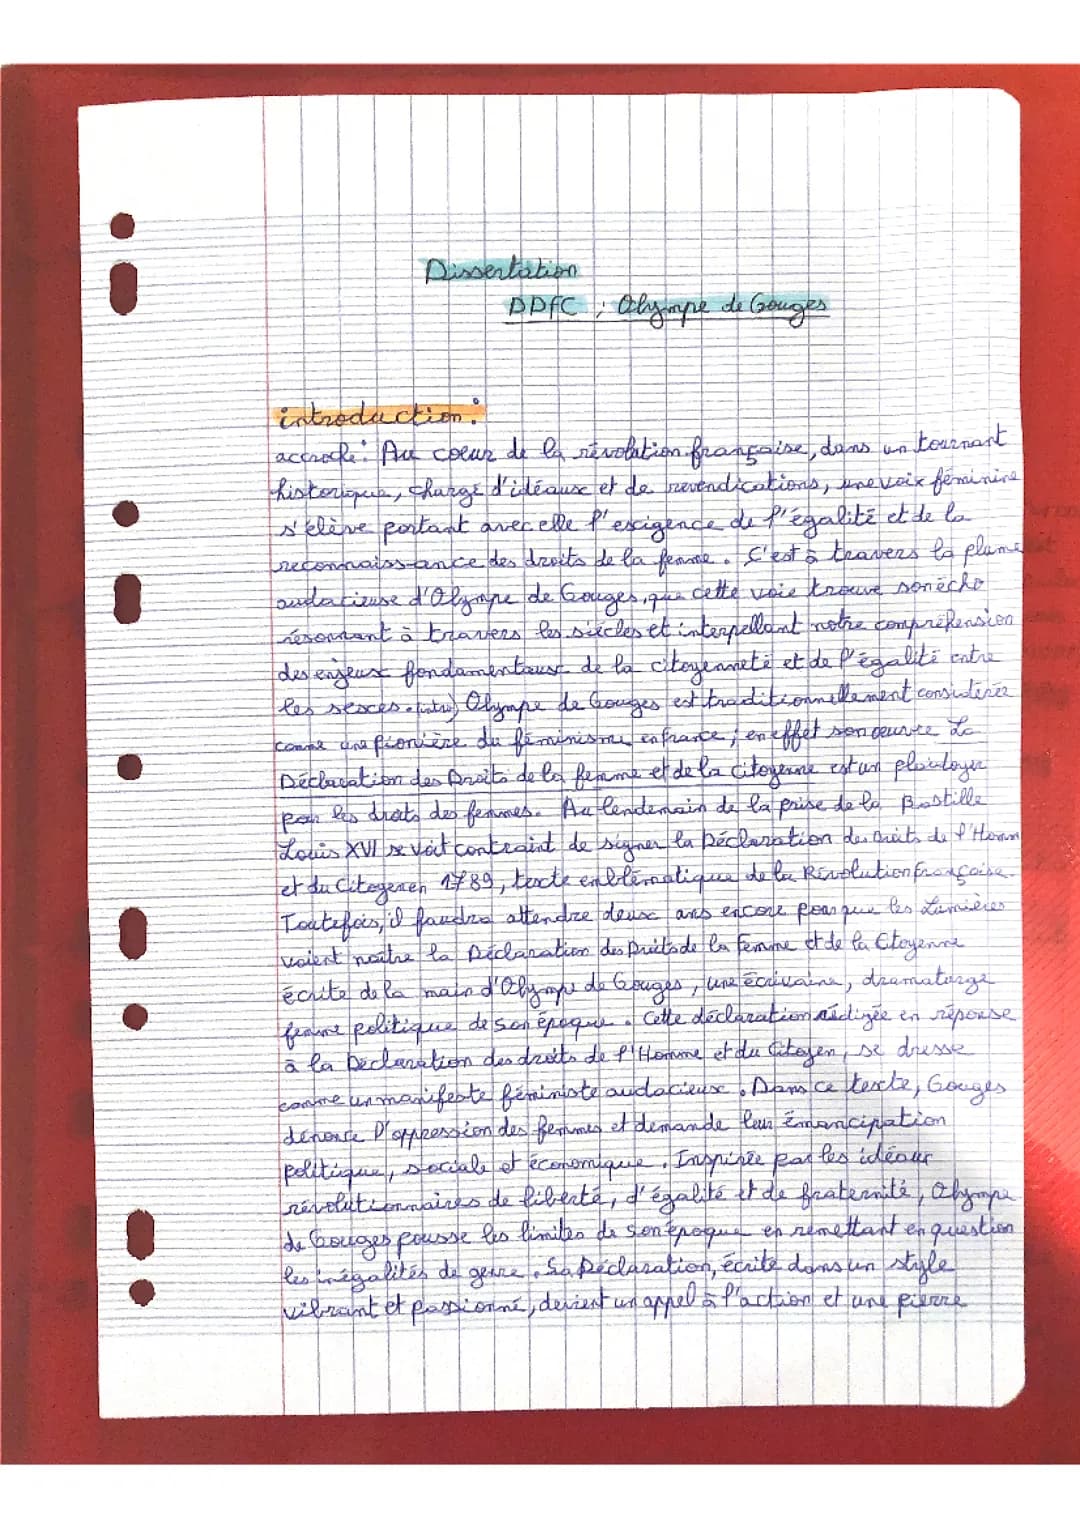 Dissertation
DDFC ; Olympe de Gouges
introduction :
accroche : Au coeur de la révolution française, dans un tournant
historique, chargé d'idéaux et de revendications, une voix féminine
s'élève portant avec elle l'exigence de l'égalité et de la
reconnaissance des droits de la femme. C'est à travers la plume
audacieuse d'Olympe de Gouges, que cette voie trouve son écho
résonnant à travers les siècles et interpellant notre compréhension
des enjeux fondamentaux de la citoyenneté et de l'égalité entre
les sexes. (intro) Olympe de Gouges est traditionnellement considérée
comme une pionière du féminisme en france ; en effet son œuvre La
Déclaration des Droits de la femme et de la citoyenne est un plaidoyer
pour les droits des femmes. Au lendemain de la prise de la Bastille
Louis XVI se voit contraint de signer la Déclaration des droits de l'Homm
et du Citoyen en 1789, texte emblématique de la Révolution française.
Toutefois, il faudra attendre deux ans encore pour que les Lumières
voient naître la Déclaration des Droits de la Femme et de la Citoyenne
écrite de la main d'Olympe de Gouges, une écrivaine, dramaturge
femme politique de son époque. Cette déclaration rédigée en réponse
à la Déclaration des droits de l'Homme et du Citoyen, se dresse
comme un manifeste féministe audacieux. Dans ce texte, Gouges
dénonce l'oppression des femmes et demande leur émancipation
politique, sociale et économique. Inspirée par les idéaux
révolutionnaires de liberté, d'égalité et de fraternité, Olympe
de Gouges pousse les limites de son époque en remettant en question
les inégalités de genre. Sa Déclaration, écrite dans un style
vibrant et passionné, devient un appel à l'action et une pierre